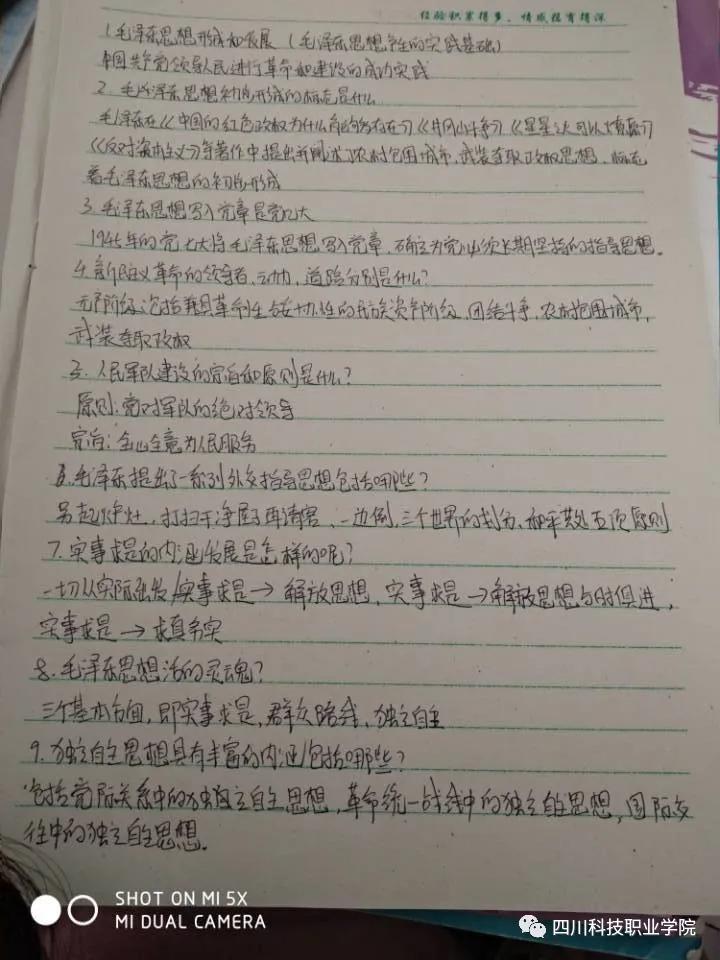 经验积累得多，情感孕育得深
1.毛泽东思想形成和发展（毛泽东思想产生的实践基础）
中国共产党领导人民进行革命和建设的成功实践
2.毛泽东思想初步形成的标志是什么
毛泽东在《中国的红色政权为什么能够存在》《井冈山斗争》《星星之火可以燎原》
《反对本本主义》等著作中提出并阐述了农村包围城市，武装夺取政权思想，标志
着毛泽东思想的初步形成
3.毛泽东思想写入党章是党几大
1945年的党七大将毛泽东思想写入党章，确立为党必须长期坚持的指导思想。
4.新民主义革命的领导者，动力，道路分别是什么？
无产阶级；包括我具革命性与妥协性的民族资产阶级，团结斗争，农村包围城市，
武装夺取政权
5.人民军队建设的宗旨和原则是什么？
原则：党对军队的绝对领导
宗旨：全心全意为人民服务
6.毛泽东提出了一系列外交指导思想包括哪些？
另起炉灶，打扫干净屋子再请客，一边倒，三个世界的划分，和平共处五项原则
7.实事求是的内涵发展是怎样的呢？
一切从实际出发/实事求是→解放思想，实事求是→解放思想与时俱进，
实事求是→求真务实
8.毛泽东思想活的灵魂？
三个基本方面，即实事求是，群众路线，独立自主
9.独立自主思想具有丰富的内涵包括哪些？
包括党际关系中的独立自主思想，革命统一战线中的独立自主思想，国际交
往中的独立自主思想。
SHOT ON MI 5X
MI DUAL CAMERA
四川科技职业学院